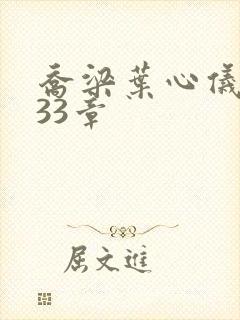 乔梁葉心儀
33章
屈文進